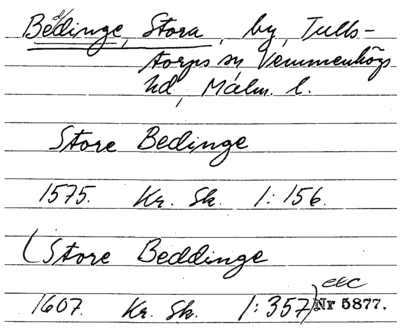 Beddinge, Stora, by, Tulls-
torps sn, Vemmenhögs
hd, Malm. l.
Store Bedinge
1575. Kr. Sk. 1:156.
(Store Beddinge
1607. Kr. Sk. 1:357) Nr 5877.